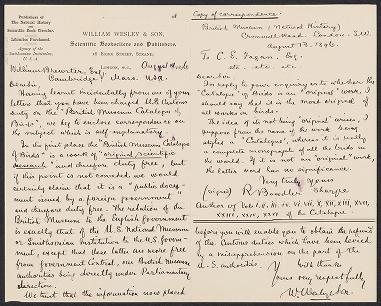 Publishers of
The Natural History
and
Scientific Book Circular.
Libraries Purchased.
Agency of the
Smithsonian Institution,
U.S.A.
WILLIAM WESLEY & SON,
Scientific Booksellers and Publishers,
28 ESSEX STREET, STRAND,
LONDON, W.C.
August 1896
William Brewster, Esq.
Cambridge, Mass. USA.
Dear Sir,
Having learnt incidentally from one of your
letters that you have been charged U.S. Customs
duty on the "British Museum Catalogue of
Birds", we beg to enclose correspondence on
the subject which is self explanatory.
In the first place the "British Museum Catalogue
of Birds" is a result of "original scientific
research" and therefore duty free, but if
this point is not conceded we would
certainly claim that it is a "public docu-
ment issued by a foreign government"
and therefore duty free. The relation of the
British Museum to the English Government
is exactly that of the U.S. National Museum
or Smithsonian Institution to the U.S. Govern-
ment, except that these latter are more free
from government control, our British Museum
authorities being directly under Parliamentary
direction.
We trust that the information now placed
Copy of correspondence
British Museum (Natural History)
Cromwell Road London. S.W.
August 13. 1896.
To C. E. Fagan, Esq.
etc. etc. etc.
Dear Sir,
In reply to your enquiry as to whether the
"Catalogue of Birds" is an "original" work, I
should say that it is the most original of
all works on birds.
The idea of its not being "original" arises, I
suppose from the name of the work being
styled a "Catalogue", whereas it is really
a complete monograph of all the birds in
the world. If it is not an "original" work,
the latter word has no significance.
Very truly yours
(signed) R Bowdler Sharpe
Author of Vol. I. II. III. IV. VI. VII, X, XII, XIII, XVII,
XXIII, XXIV, XXVI of the Catalogue
before you will enable you to obtain the refund
of the Customs duties which have been levied
by a misapprehension on the part of the
U.S. authorities.
Yours very respectfully
W. Wesley & Son.